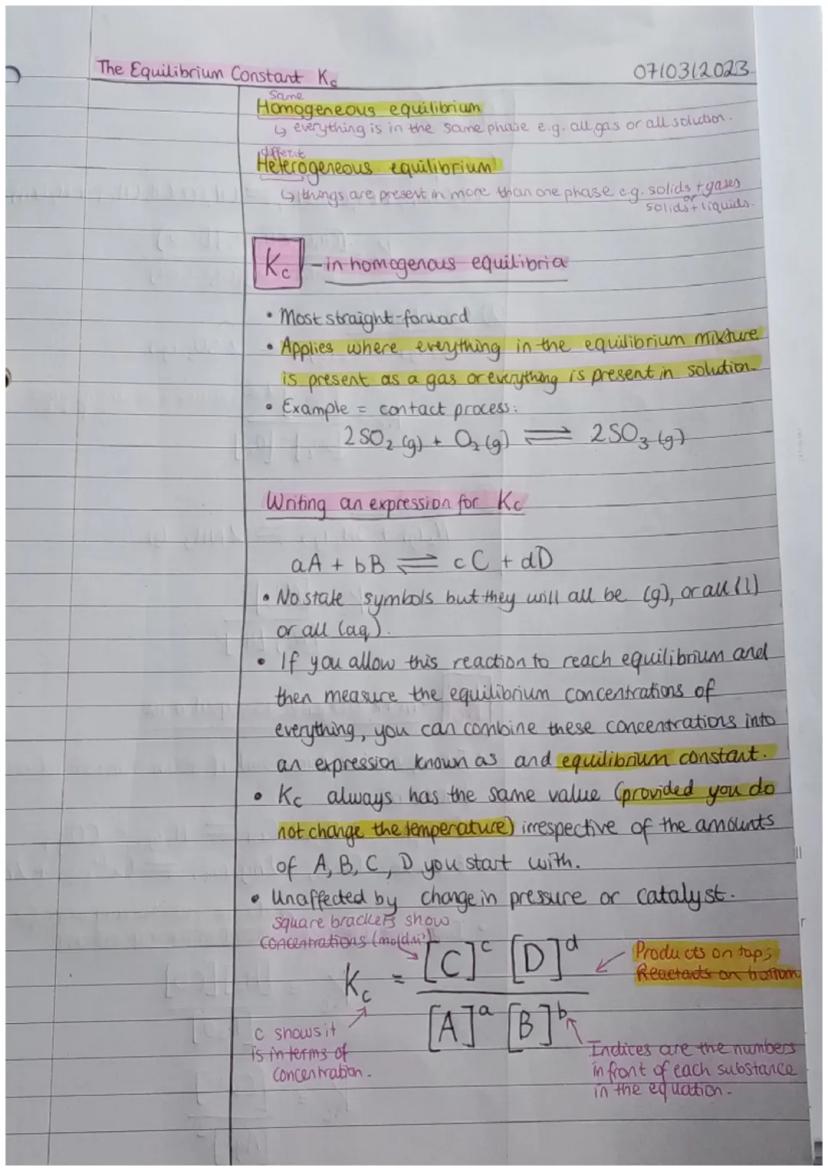 The Equilibrium Constant Kc
07/03/2023
Same
Homogeneous equilibrium
↳ everything is in the same phase e.g. all gas or all solution.
different
Heterogeneous equilibrium
↳ things are present in more than one phase e.g. solids + gases
or
solids + liquids.
Kc - in homogenous equilibria
• Most straight-forward
• Applies where everything in the equilibrium mixture
is present as a gas or everything is present in solution.
• Example = contact process:
2SO₂ (g) + O₂ (g) ⇌ 2SO₃ (g)
Writing an expression for Kc
aA + bB ⇌ cC + dD
• No state symbols but they will all be (g), or all (l)
or all (aq).
• If you allow this reaction to reach equilibrium and
then measure the equilibrium concentrations of
everything, you can combine these concentrations into
an expression known as and equilibrium constant.
• Kc always has the same value (provided you do
not change the temperature) irrespective of the amounts
of A, B, C, D you start with.
• Unaffected by change in pressure or catalyst.
square brackets show
concentrations (moldm⁻³)
Kc = [C]ᶜ [D]ᵈ / [A]ᵃ [B]ᵇ
Products on top;
Reactacts on bottom
c shows it
is in terms of
concentration.
Indices are the numbers
in front of each substance
in the equation.